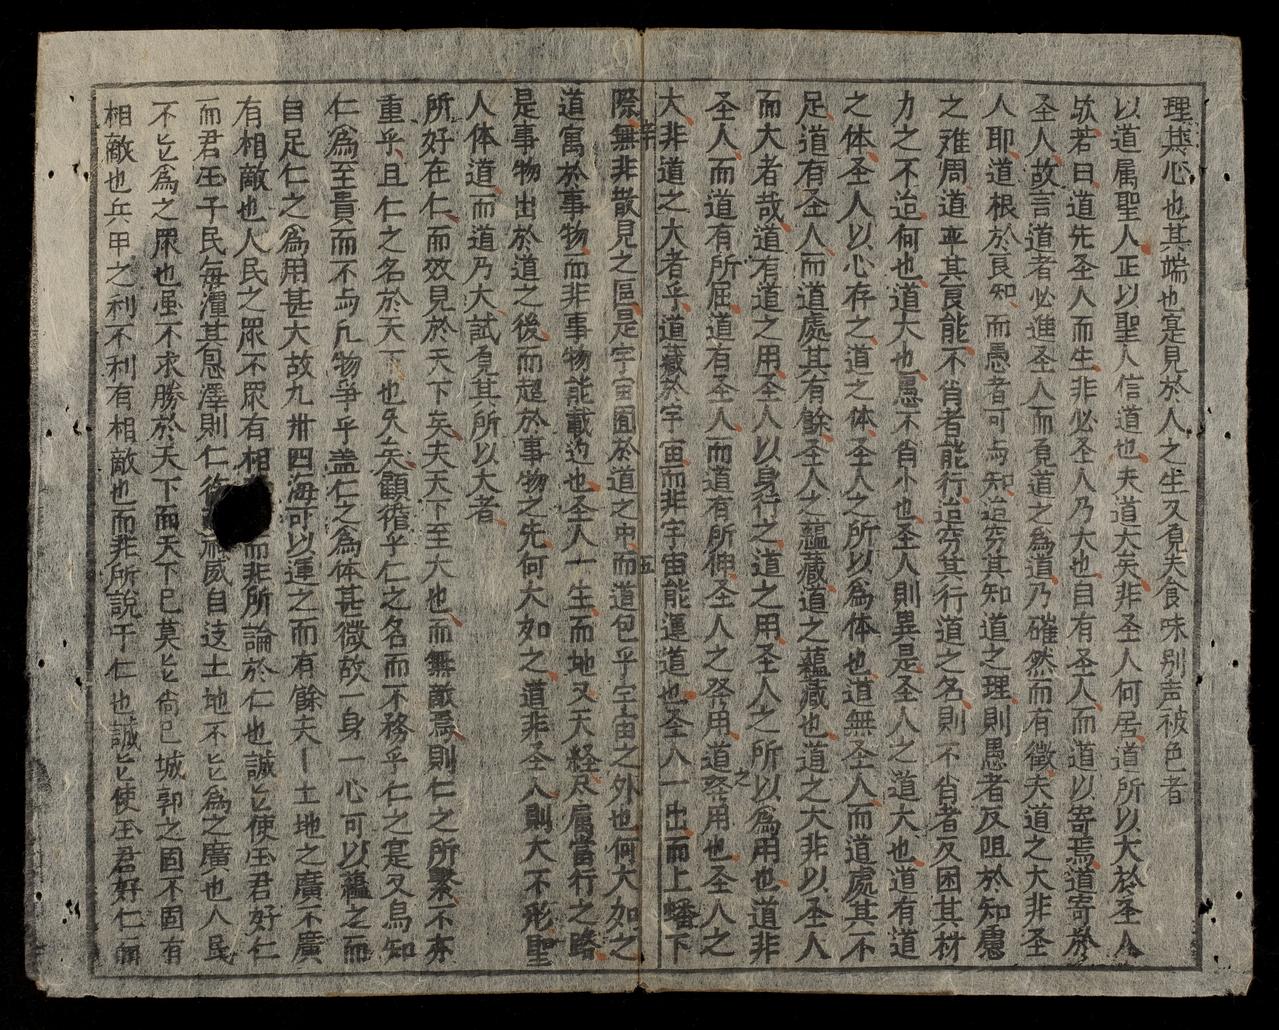 理其心也其端也寔見於人之生又見夫食味别声被色者
以道属聖人正以聖人信道也夫道大矣非圣人何居道所以大於圣人
欤若曰道先圣人而生非必圣人乃大也自有圣人而道以寄焉道寄於
圣人故言道者必進圣人而見道之為道乃確然而有徵夫道之大非圣
人耶道根於良知而愚者可与知迨穷其知道之理則愚者反阻於知慮
之难周道平其良能不肖者能行迨穷其行道之名則不肖者反困其材
力之不迨何也道大也愚不肖小也圣人則異是圣人之道大也道有道
之体圣人以心存之道之体圣人之所以為体也道無圣人而道處其不
足道有圣人而道處其有餘圣人之蘊藏道之蘊藏也道之大非以圣人
而大者哉道有道之用圣人以身行之道之用圣人之所以為用也道非
圣人而道有所屈道有圣人而道有所伸圣人之發用道之發用也圣人之
大非道之大者乎道藏於宇宙而非宇宙能運道也圣人一出而上蟠下
際無非散見之區是宇宙囿於道之中而道包乎宇宙之外也何大如之
道寓於事物而非事物能載道也圣人一生而地义天経尽属當行之路
是事物出於道之後而超於事物之先何大如之道非圣人則大不形聖
人体道而道乃大試見其所以大者
所好在仁而效見於天下矣夫天下至大也而無敵焉則仁之所繫不亦
重乎且仁之名於天下也久矣顧循乎仁之名而不務乎仁之寔又烏知
仁為至貴而不与凡物爭乎盖仁之為体甚微故一身一心可以蘊之而
自足仁之為用甚大故九卅四海可以運之而有餘夫土地之廣不廣
有相敵也人民之眾不眾有相而非所論於仁也誠使国君好仁
而君国子民每渾其恩澤則仁威自遠土地不為之廣也人民
不為之眾也强不求勝於天下而天下已莫尚已城郭之固不固有
相敵也兵甲之利不利有相敵也而非所說于仁也誠使国君好仁